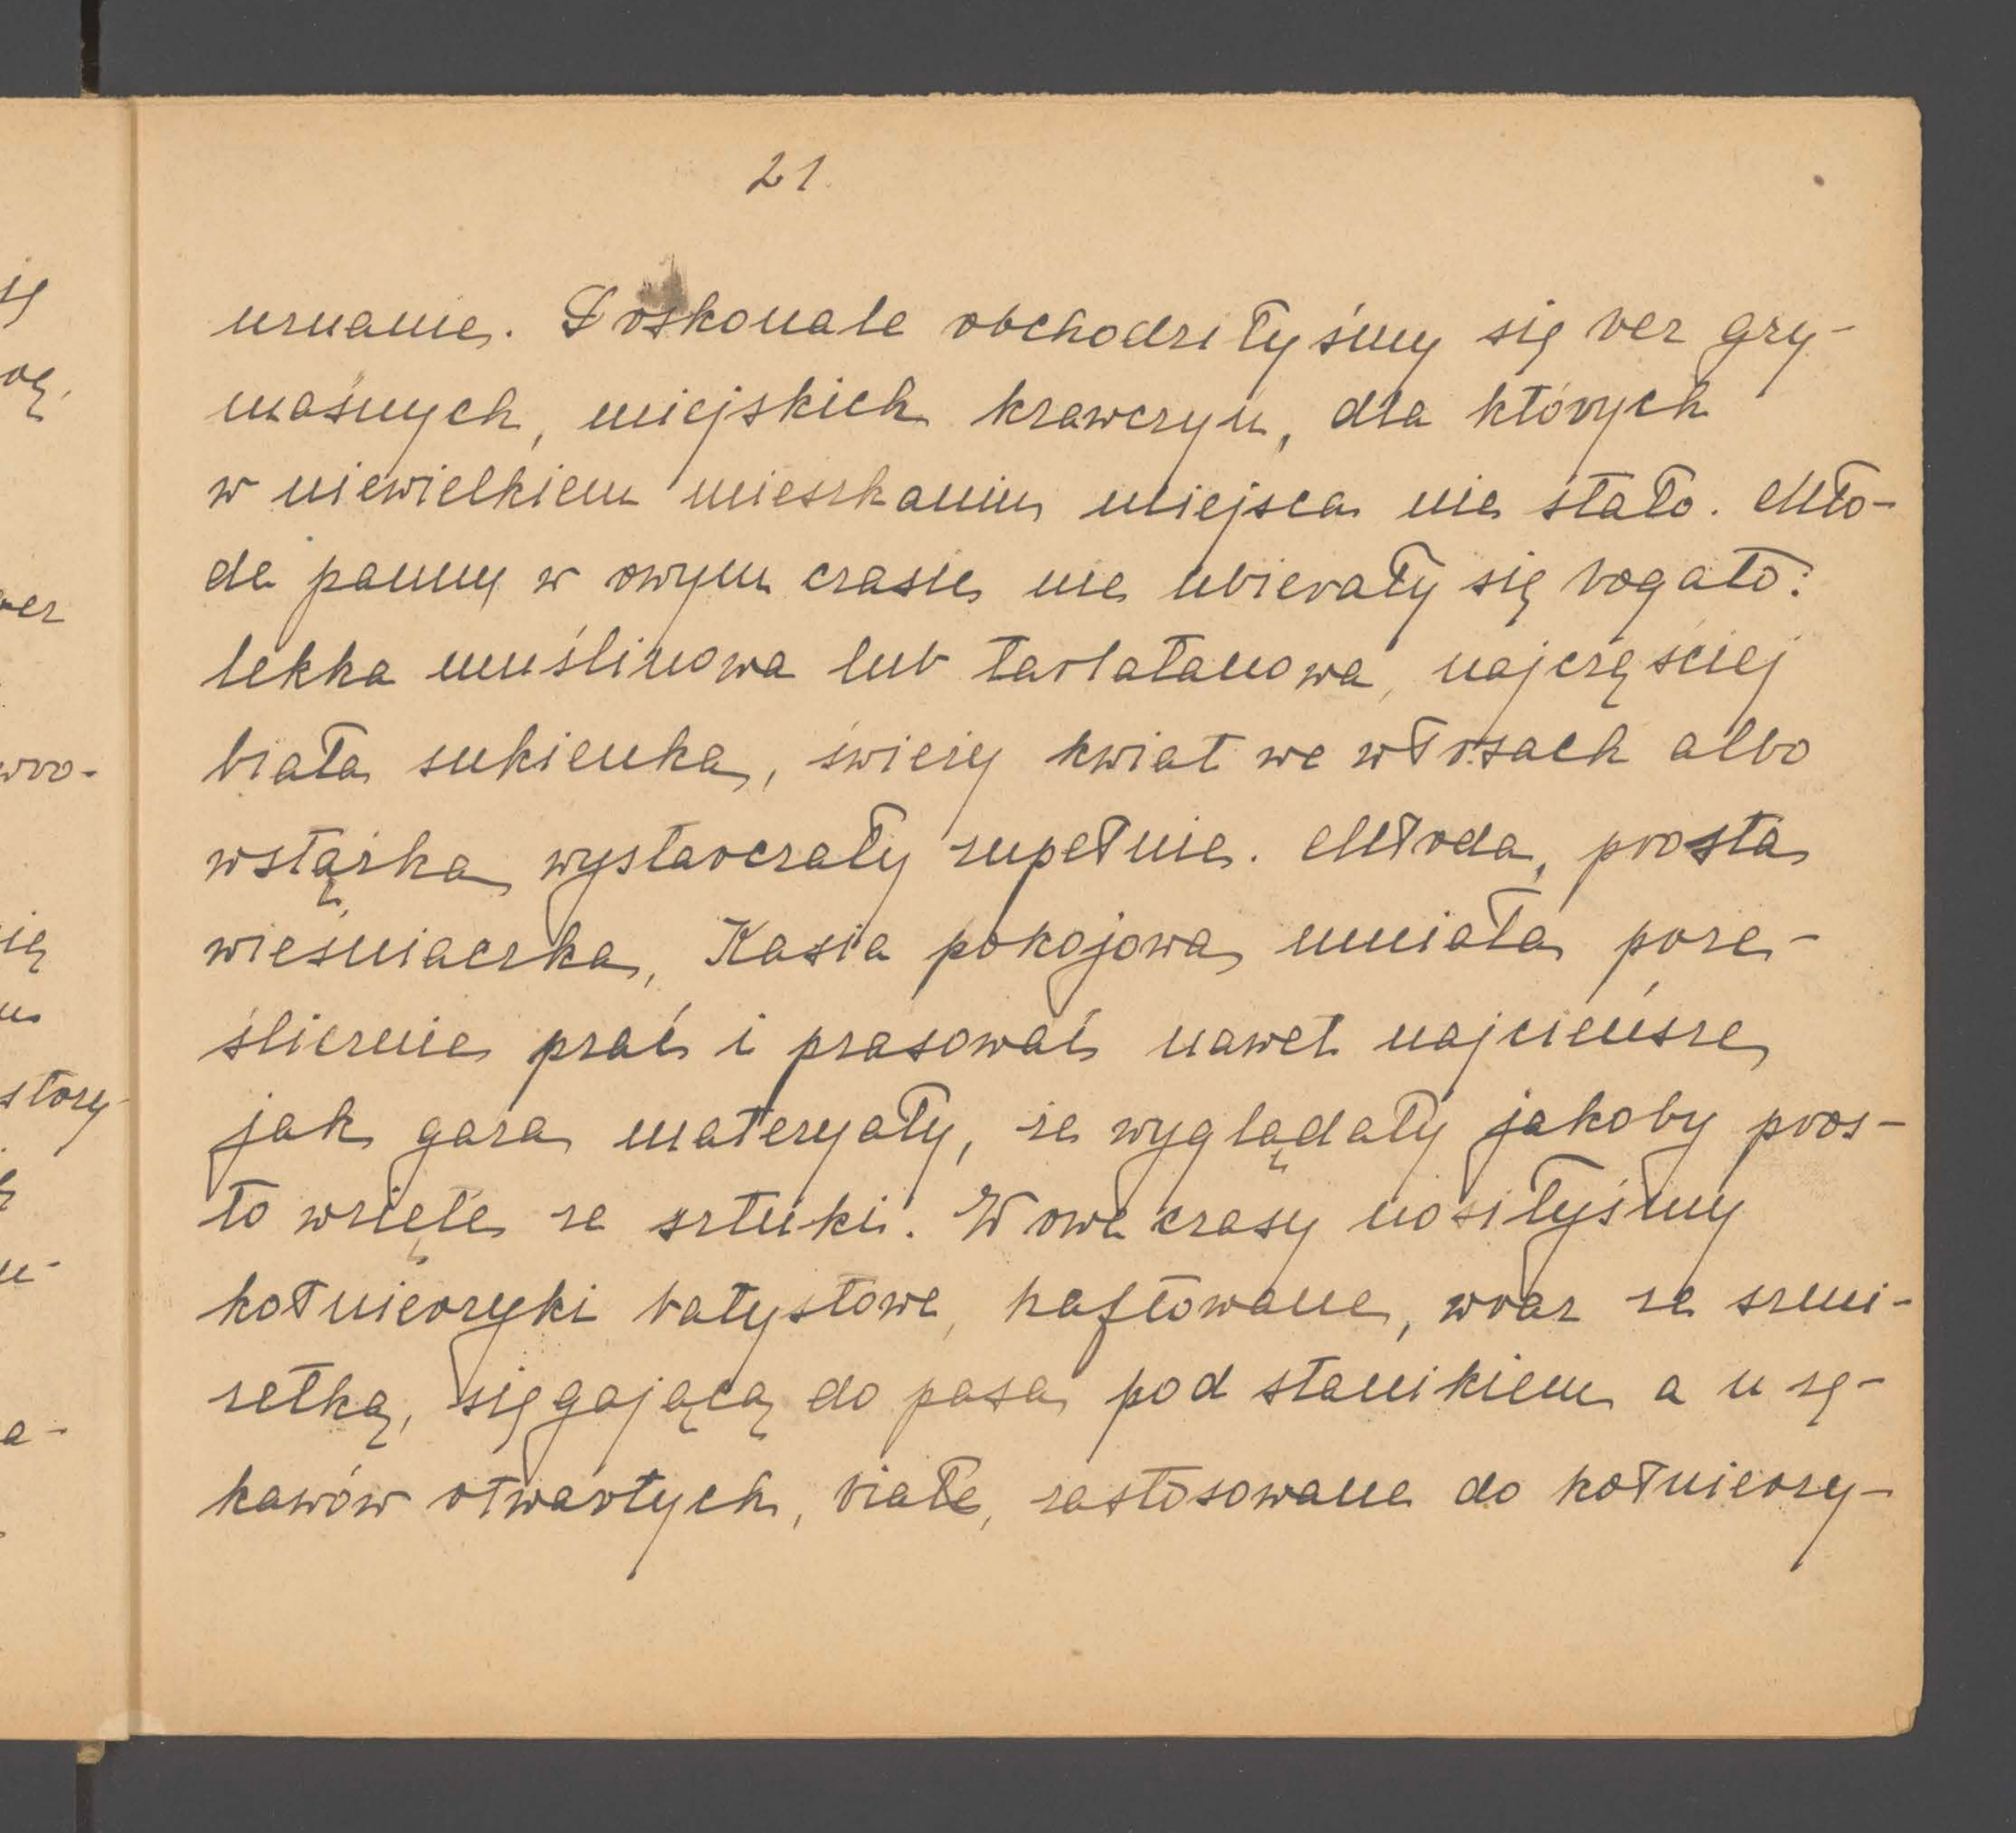 21
uznanie. Doskonale obchodziłyśmy się bez gry-
maśnych, miejskich krawczyń, dla których
w niewielkiem mieszkaniu miejsca nie stało. Mło-
de panny w owym czasie nie ubierały się bogato:
lekka muślinowa lub tarlatanowa, najczęściej
biała sukienka, świeży kwiat we włosach albo
wstążka wystarczały zupełnie. Młoda, prosta
wieśniaczka, Kasia pokojowa umiała prze-
ślicznie prać i prasować nawet najcieńsze
jak gaza materyały, że wyglądały jakoby pros-
to wzięte ze sztuki. W owe czasy nosiłyśmy
kołnierzyki batystowe, haftowane, wraz ze szmi-
zetką, sięgającą do pasa pod stanikiem a u rę-
kawów otwartych, białe, zastosowane do kołnierzy-